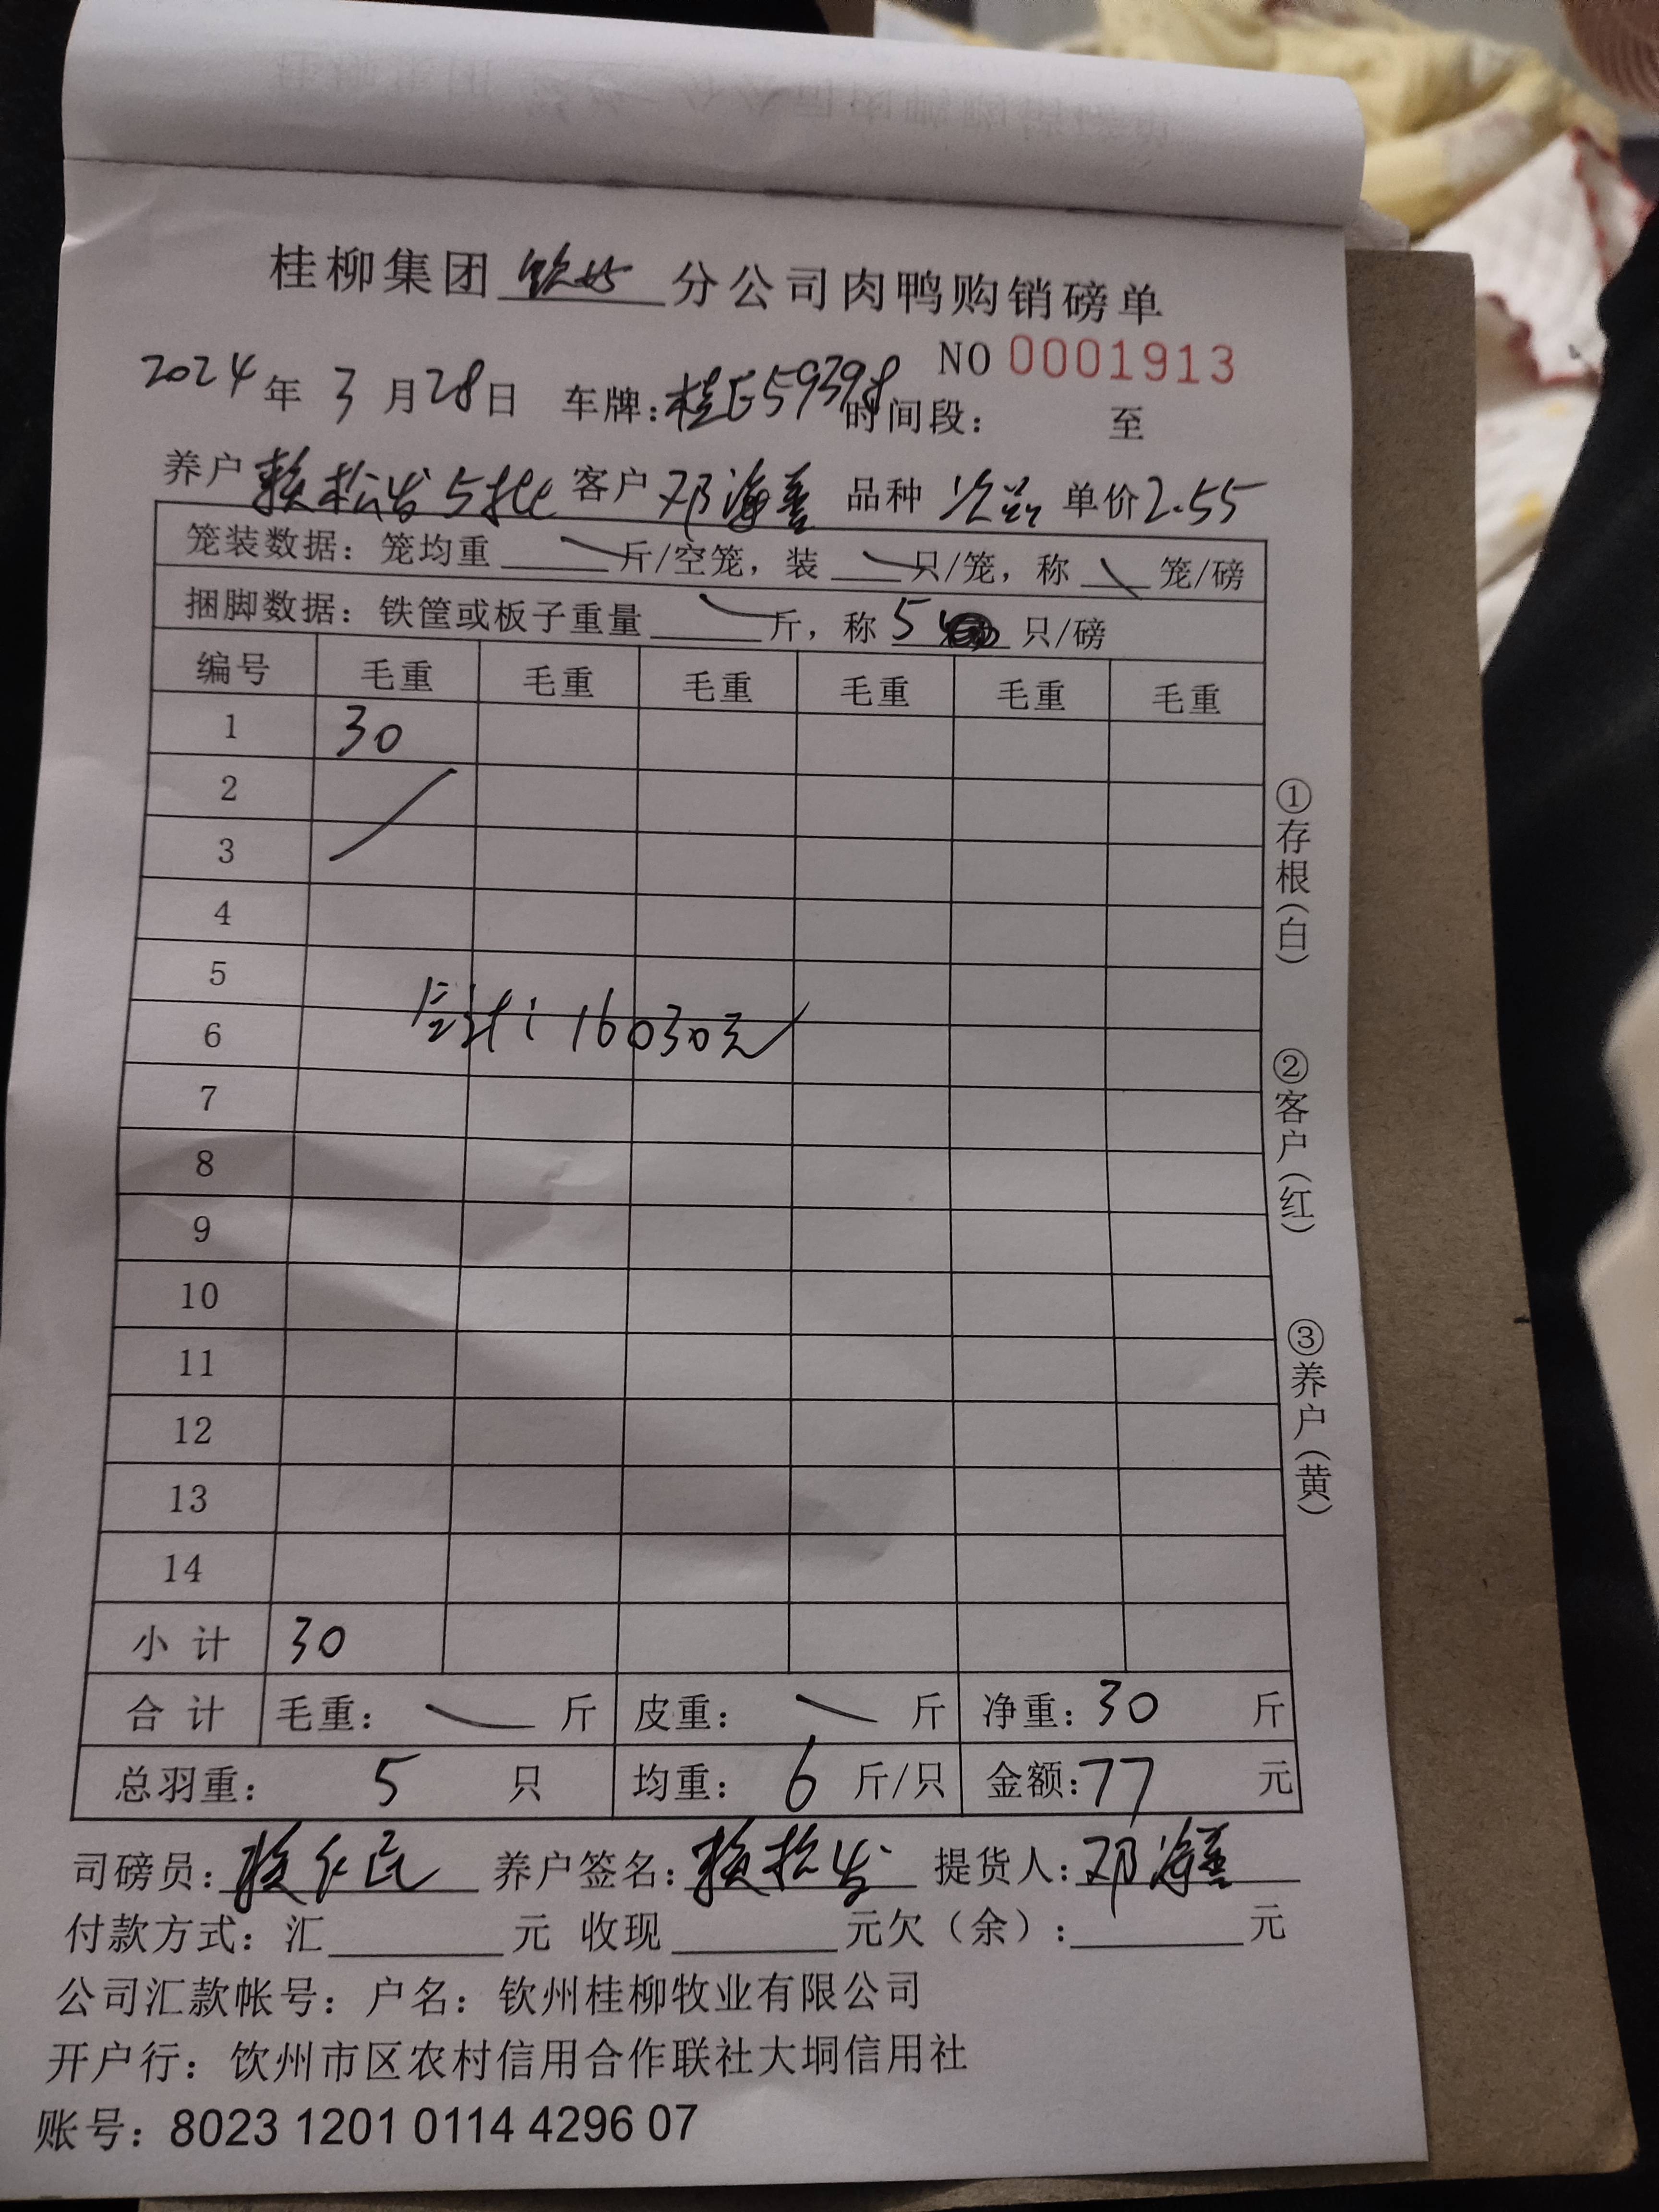 桂柳集团 钦州 分公司肉鸭购销磅单
NO 0001913
2024年 3 月 28 日 车牌: 桂E59398 时间段: 至
养户 赖松发 5批 客户 邓海善 品种 次品 单价 2.55
笼装数据: 笼均重 斤/空笼, 装 只/笼, 称 笼/磅
捆脚数据: 铁筐或板子重量 斤, 称 5 只/磅
编号 毛重 毛重 毛重 毛重 毛重 毛重
1 30
2
3
4
5
合计: 16030元
6
7
8
9
10
11
12
13
14
小 计 30
合 计 毛重: 斤 皮重: 斤 净重: 30 斤
总羽重: 5 只 均重: 6 斤/只 金额: 77 元
司磅员: 养户签名: 赖松发 提货人: 邓海善
付款方式: 汇 元 收现 元欠（余）: 元
公司汇款帐号: 户名: 钦州桂柳牧业有限公司
开户行: 钦州市区农村信用合作联社大垌信用社
账号: 8023 1201 0114 4296 07
①存根(白)
②客户(红)
③养户(黄)